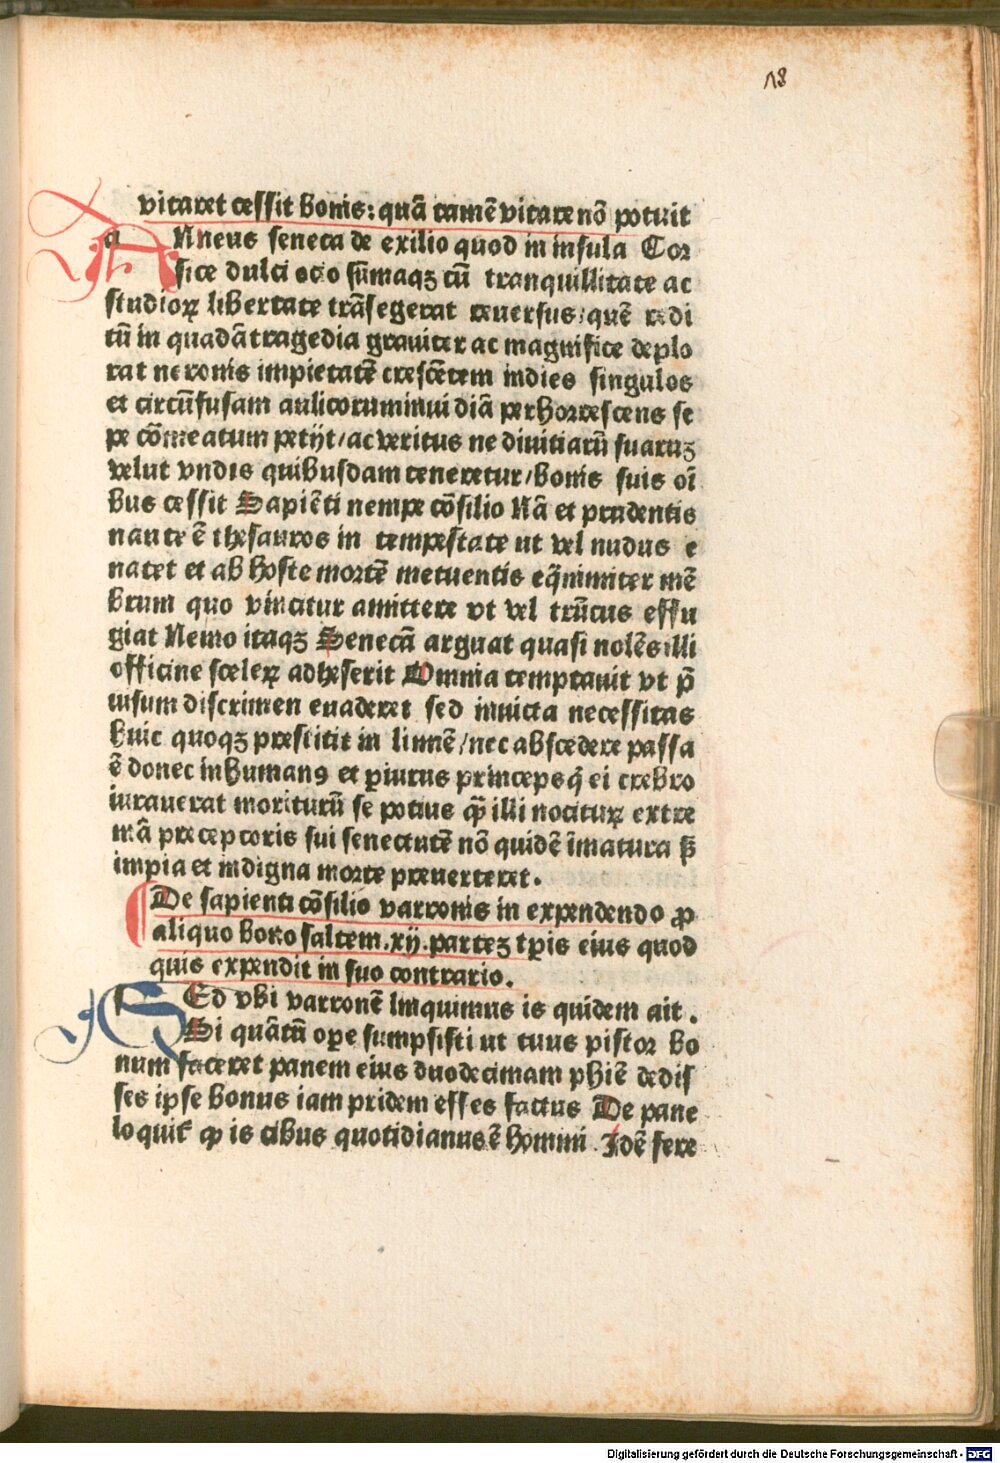 18
vitaret cessit bonis: quā tamē vitare nō potuit
ANneus seneca de exilio quod in insula Cor
sice dulci ocio sūmaqꝫ cū tranquillitate ac
studioꝝ libertate trāsegerat reuersus: quē redi
tū in quadā tragedia grauiter ac magnifice deplo
rat neronis impietatē crescētem indies singulos
et circūfusam aulicorum inuidiā perhorrescens se
pe cōmeatum petijt/ ac veritus ne diuitiarū suaruꝫ
velut vndis quibusdam teneretur/ bonis suis oī
bus cessit Sapiēti nempe cōsilio Nā et prudentis
naute ē thesauros in tempestate ut vel nudus e
natet et ab hoste mortē metuentis eq̄nimiter mē
brum quo vincitur amittere vt vel trūcus effu
giat Nemo itaqꝫ Senecā arguat quasi nolēs illi
officine sceleꝝ adheserit Omnia temptauit vt p̄
uisum discrimen euaderet sed inuicta necessitas
huic quoqꝫ prestitit in limnē/ nec abscedere passa
ē donec inhumanꝯ et ꝑiurus princeps q̄ ei crebro
iurauerat moriturū se potius qꝫ̄ illi nocituꝝ extre
mā preceptoris sui senectutē nō quidē īmatura sꝫ
impia et indigna morte preuerteret.
De sapienti cōsilio varronis in expendendo ꝓ
aliquo bono saltem .xij. parteꝫ tꝑis eius quod
quis expendit in suo contrario.
SEd vbi varronē linquimus is quidem ait .
Si quātū oꝑe sumpsisti ut tuus pistor bo
num faceret panem eius duodecimam phiē dedis
ses ipse bonus iam pridem esses factus De pane
loquit᷑ ꝙ is cibus quotidianus ē homini . Idē fere
Digitalisierung gefördert durch die Deutsche Forschungsgemeinschaft - DFG